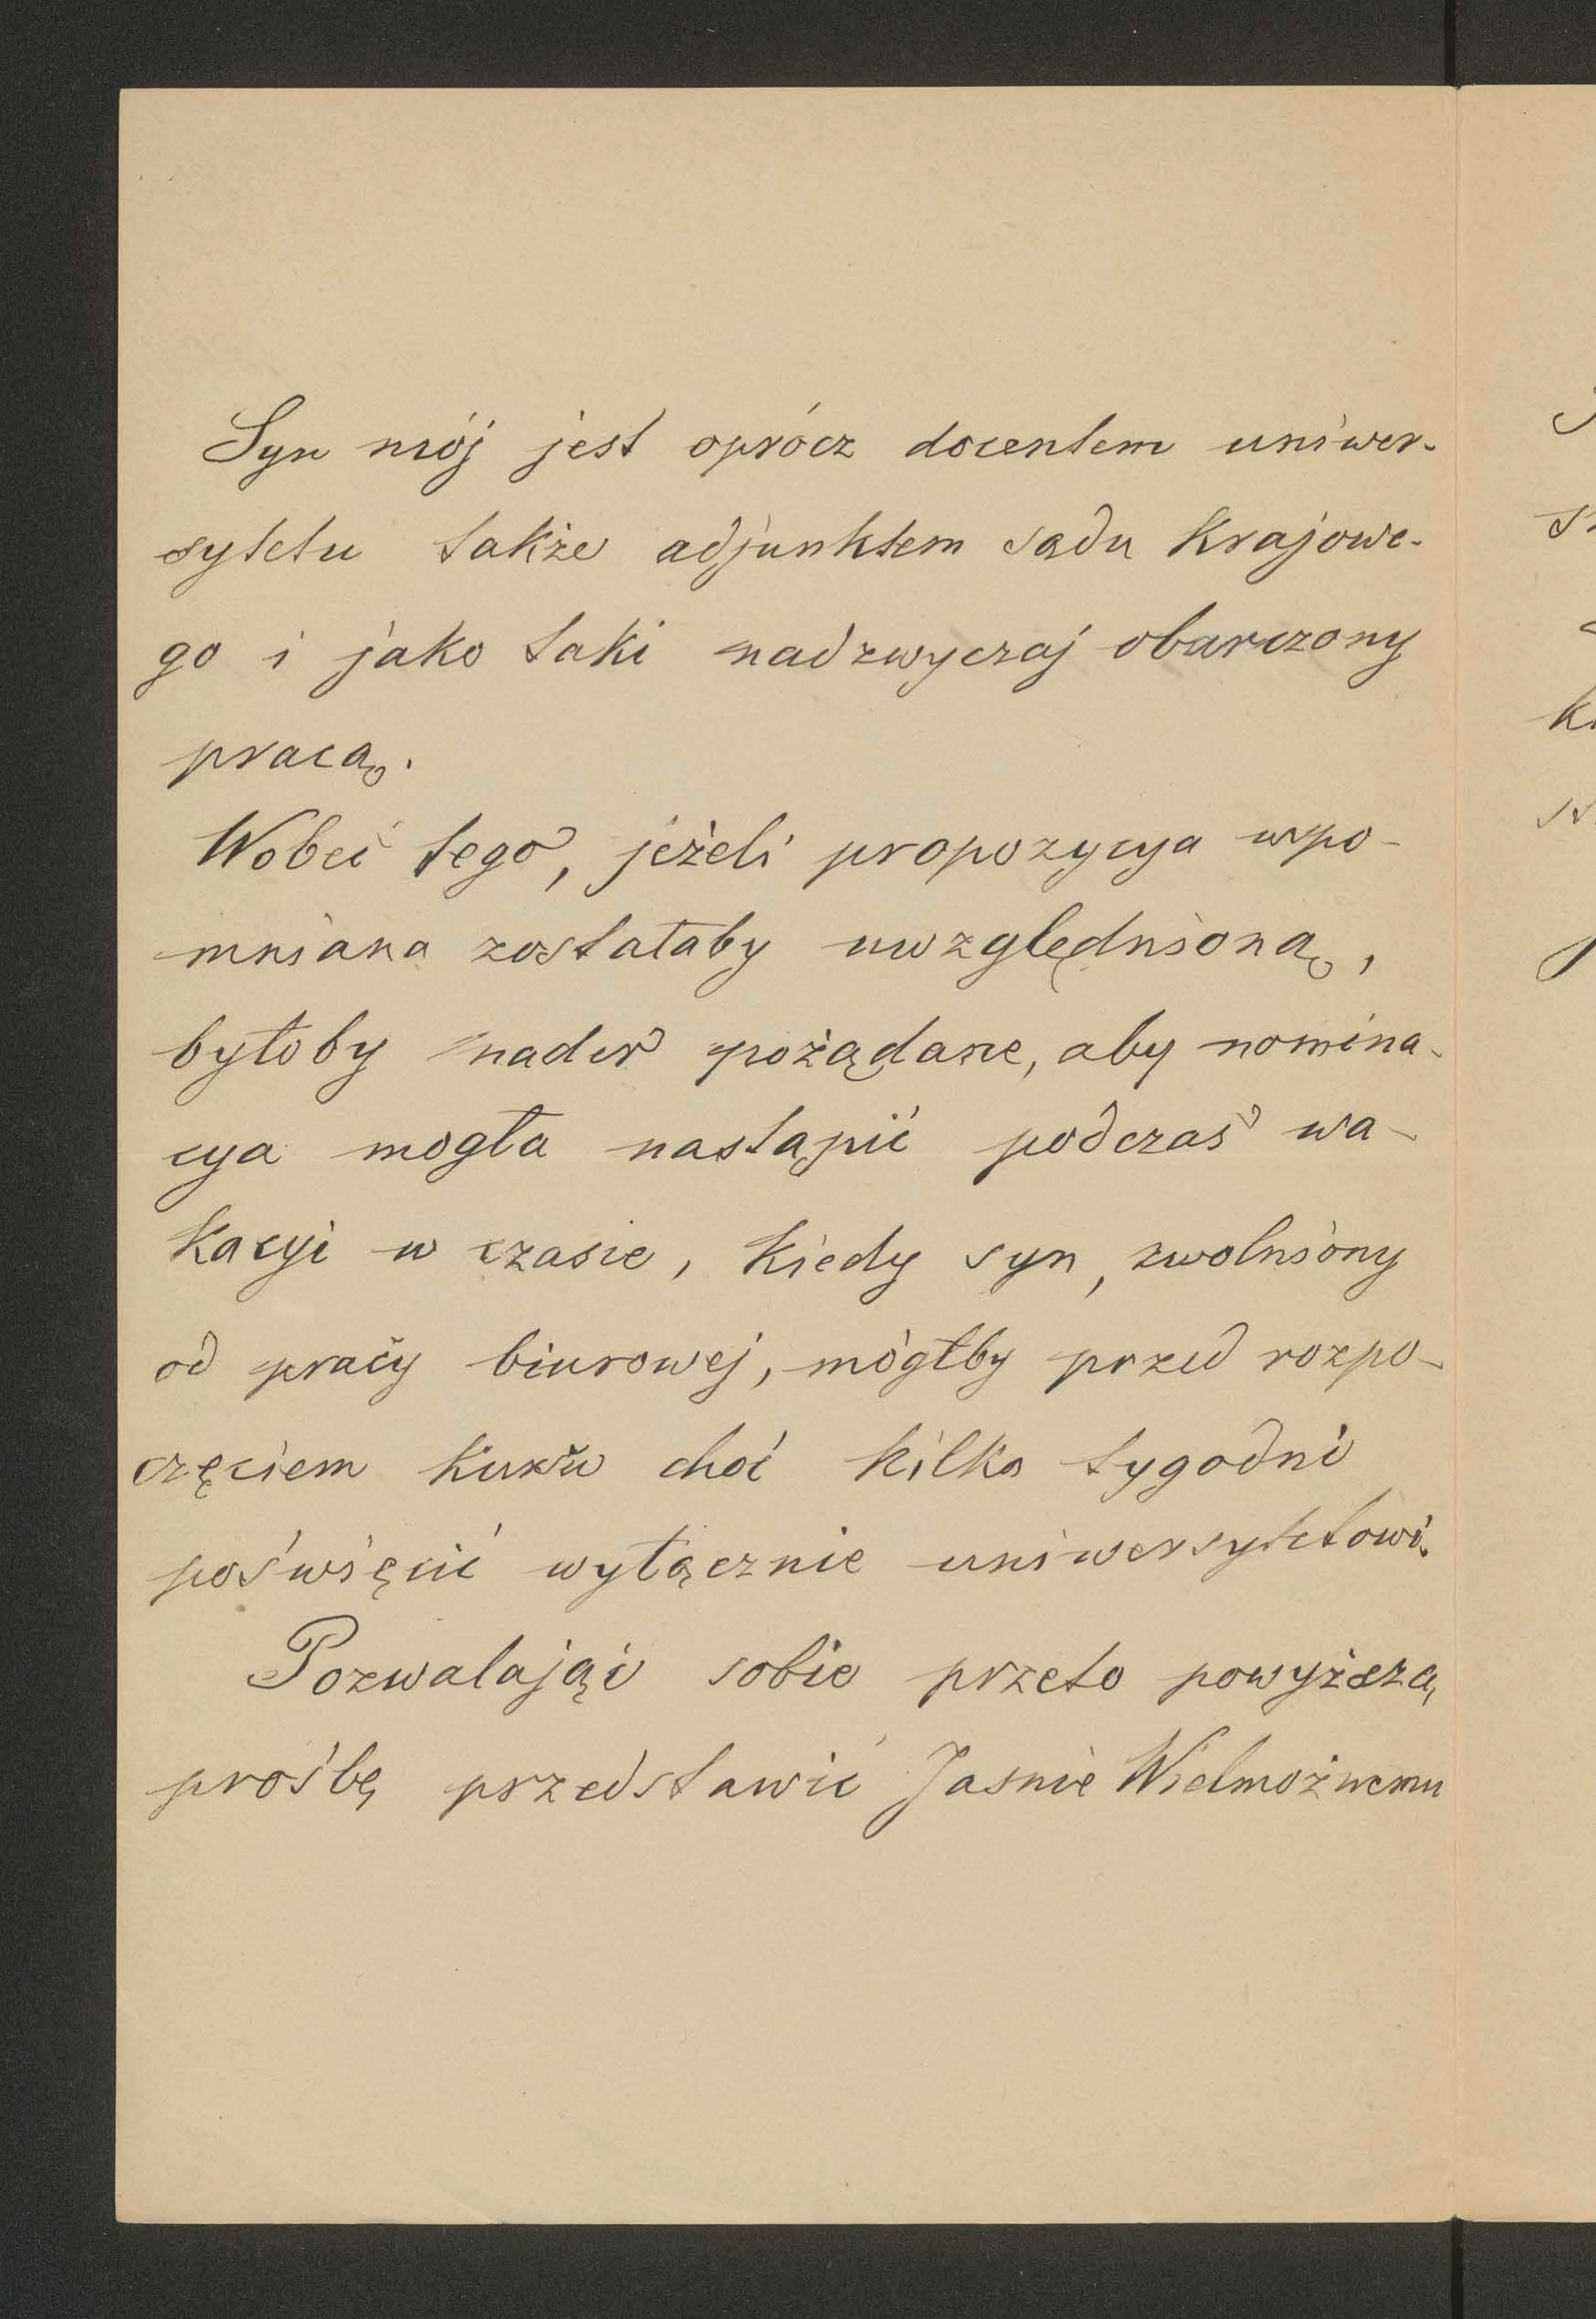 Syn mój jest oprócz docentem uniwer-
sytetu także adjunktem sądu krajowe-
go i jako taki nadzwyczaj obarczony
pracą.
Wobec tego, jeżeli propozycya wspo-
mniana zostałaby uwzględnioną,
byłoby nader pożądane, aby nomina-
cya mogła nastąpić podczas wa-
kacyi w czasie, kiedy syn, zwolniony
od pracy biurowej, mógłby przed rozpo-
częciem kursu choć kilka tygodni
poświęcić wyłącznie uniwersytetowi.
Pozwalając sobie przeto powyższą
prośbę przedstawić Jaśnie Wielmożnemu